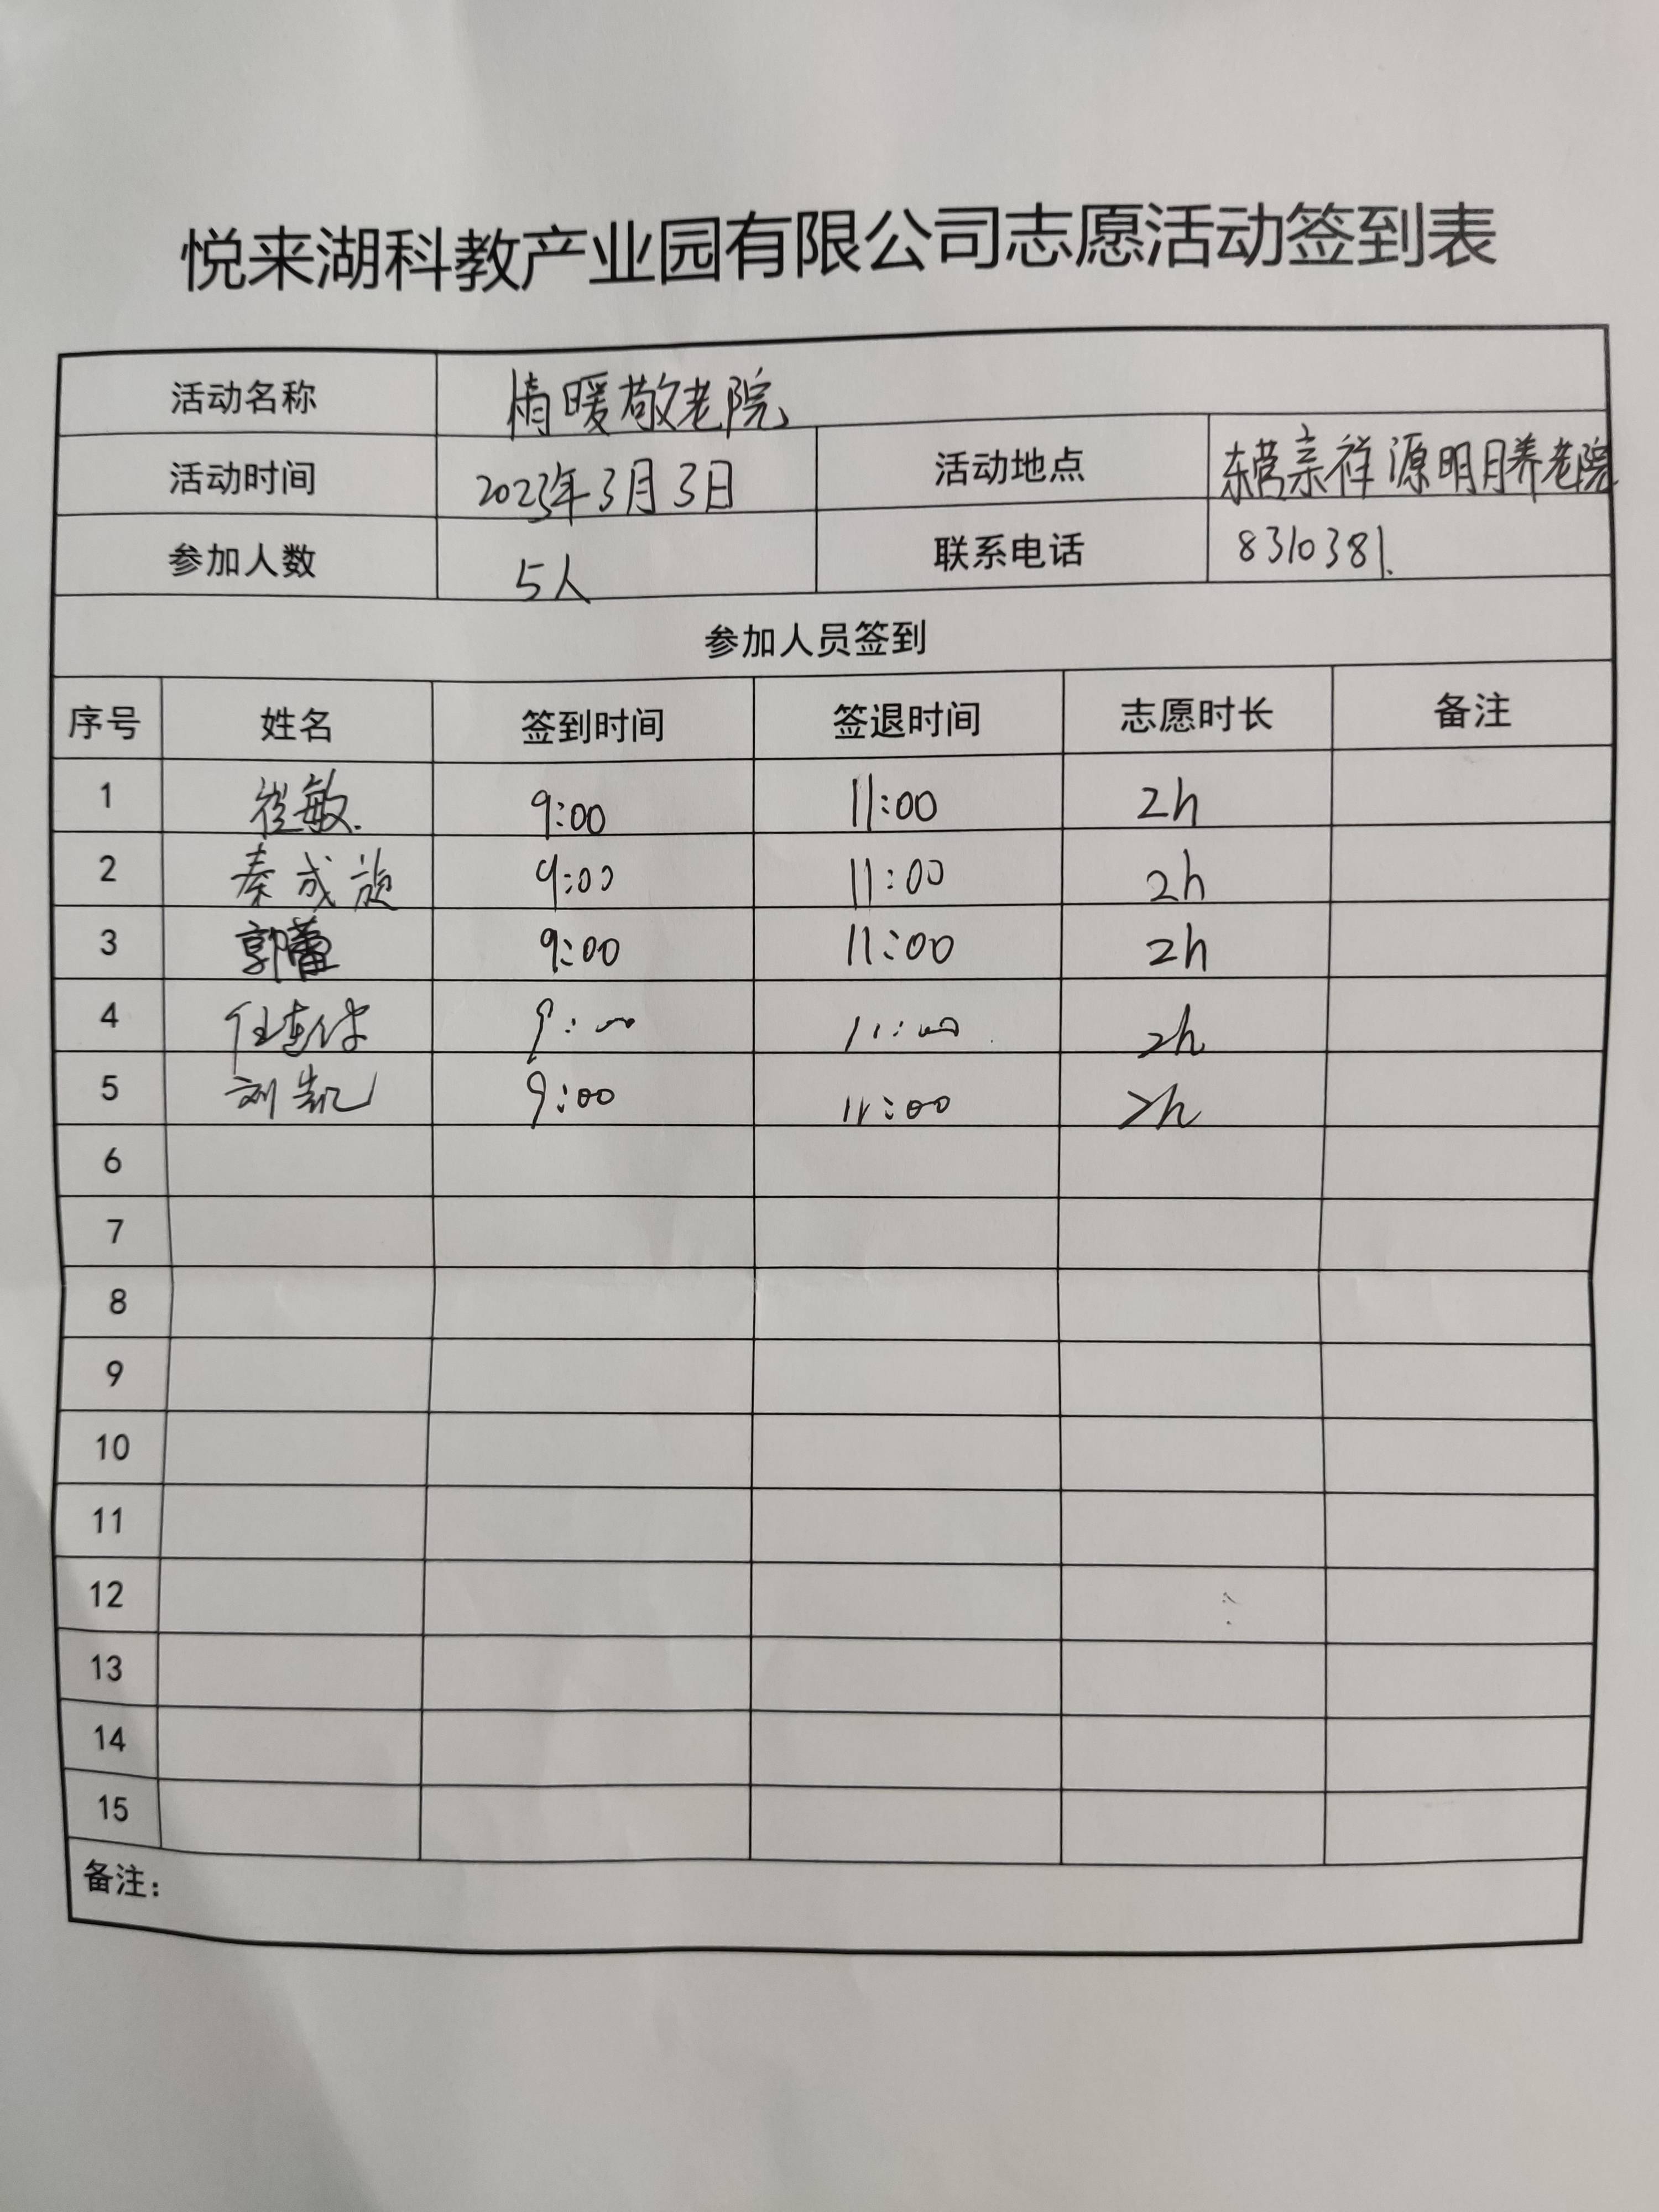 悦来湖科教产业园有限公司志愿活动签到表
活动名称 情暖敬老院
活动时间 2023年3月3日 活动地点 东营亲祥源明月养老院
参加人数 5人 联系电话 8310381.
参加人员签到
序号 姓名 签到时间 签退时间 志愿时长 备注
1 崔敏. 9:00 11:00 2h
2 秦成旋 9:00 11:00 2h
3 郭蕾 9:00 11:00 2h
4 9:00 11:00 2h
5 刘凯 9:00 11:00 2h
6
7
8
9
10
11
12
13
14
15
备注：